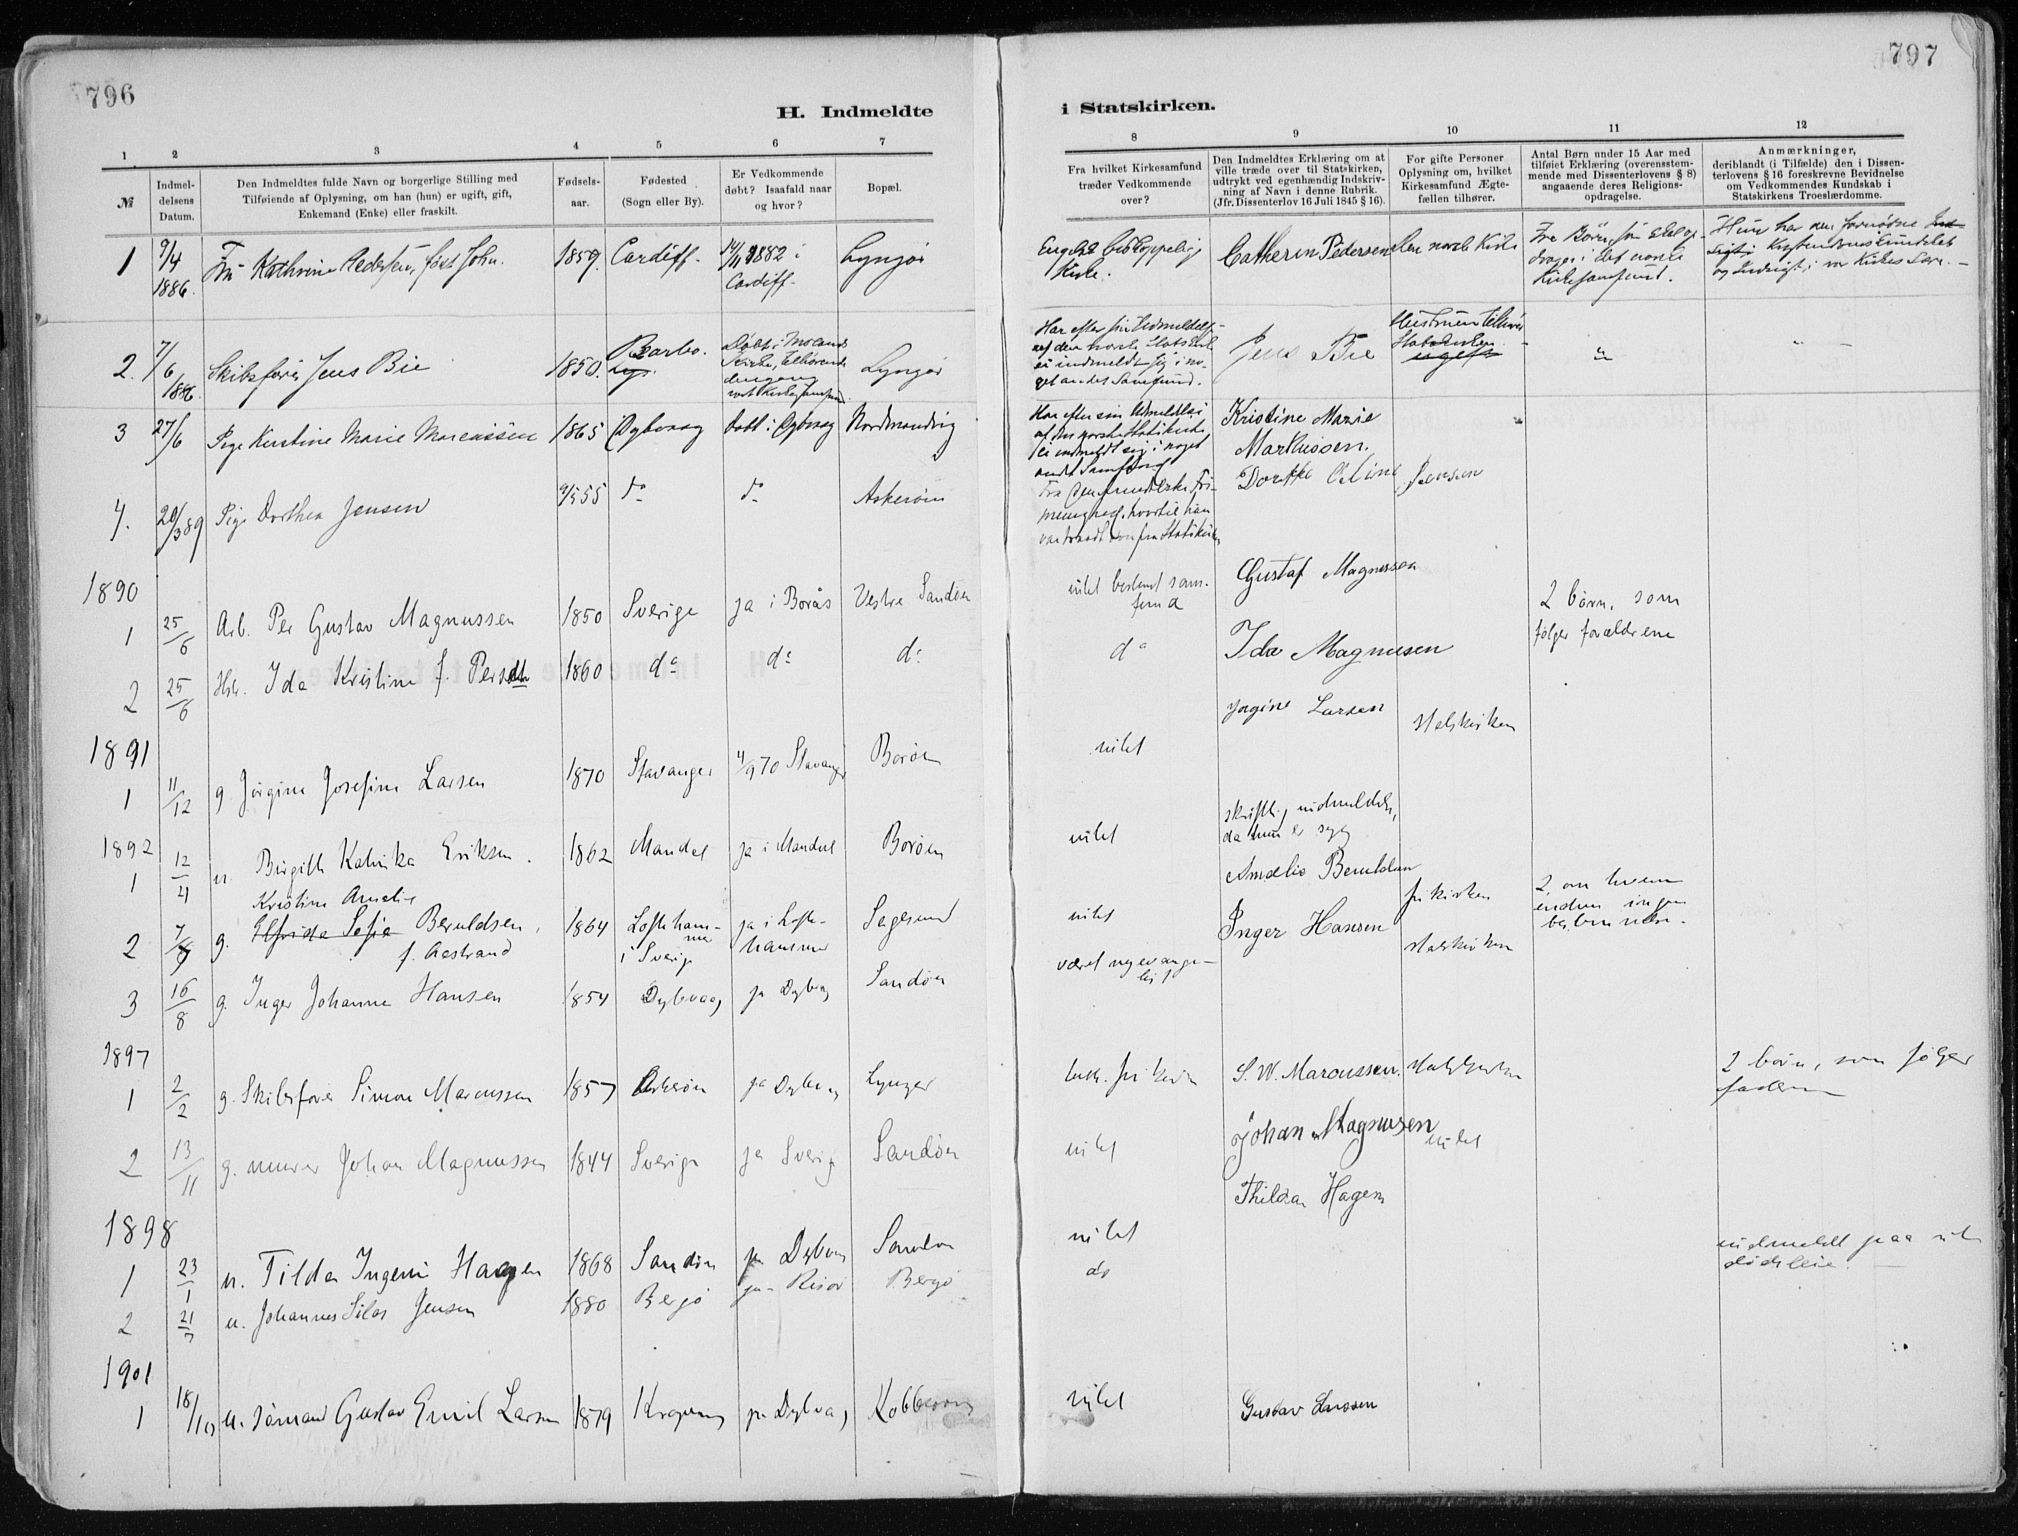 796
H. Indmeldte
1 2 3 4 5 6 7
№
Indmel-
delsens
Datum.
Den Indmeldtes fulde Navn og borgerlige Stilling med
Tilføiende af Oplysning, om han (hun) er ugift, gift,
Enkemand (Enke) eller fraskilt.
Fødsels-
aar.
Fødested
(Sogn eller By).
Er Vedkommende
døbt? Isaafald naar
og hvor?
Bopæl.
1 9/4 1886. Fru Kathrine Pedersen, født John. 1859. Cardiff. 14/11 1882 i Cardiff. Lyngør
2. 7/6 1886. Skibsfører Jens Bie 1850. Barbo. Døbt i Molands Kirke, Lyngør
3 27/6 Pige Kirstine Marie Marcussen 1865 Dybvaag døbt i Dybvag Nordmandvig
4. 20/3 89 Pige Dorthea Jensen 55 do do Askerøen
1890
1 25/6 Arb. Per Gustav Magnussen 1850 Sverige ja i Borås Vestre Sandøen
2 25/6 Hstr. Ida Kristine f. Persdtr 1860 do do do
1891
1 11/12 g. Jørgine Josefine Larsen 1870 Stavanger 4/9 70 Stavanger Borøen
1892
1 12/4 u. Birgitte Katrika Eriksen. 1862 Mandal ja i Mandal Borøen
Kristine Amalie
2 7/8 g. Elfrida Sofia Beruldsen, 1864 Loftehammer i Sverige ja i Loftehammer Sagesund
f. Aastrand
3 16/8 g. Inger Johanne Hansen 1854 Dybvaag ja Dybvag Sandøen
1897
1 2/2 g. Skibsfører Simon Marcussen 1857 Askerøen ja Dybvag Lyngør
2 13/11 g. murer Johan Magnussen 1844 Sverige ja Sverige Sandøen
1898
1 23/1 u. Tilda Ingeni Hagen 1868 Sandøen ja Dybvag Sandøen
2 21/7 u. Johannes Silas Jensen 1880 Bergø ja Risør Bergø
1901
1 18/10 u. sømand Gustav Emil Larsen 1879 Kragerø ja Dybvag
797
i Statskirken.
8 9 10 11 12
Fra hvilket Kirkesamfund
træder Vedkommende
over?
Den Indmeldtes Erklæring om at
ville træde over til Statskirken,
udtrykt ved egenhændig Indskriv-
ning af Navn i denne Rubrik.
(Jfr. Dissenterlov 16 Juli 1845 § 16).
For gifte Personer
Oplysning om, hvilket
Kirkesamfund Ægte-
fællen tilhører.
Antal Børn under 15 Aar med
tilføiet Erklæring (overensstem-
mende med Dissenterlovens § 8)
angaaende deres Religions-
opdragelse.
Anmærkninger,
deriblandt (i Tilfælde) den i Dissen-
terlovens § 16 foreskrevne Bevidnelse
om Vedkommendes Kundskab i
Statskirkens Troeslærdomme.
Engelsk biskoppelig Kirke. Catherin Pedersen Den norske Kirke
det norske
Kirkesamfund.
Hun har den fornødne
Kristendomskundskab
og Indsigt i vor Kirkes Lære.
Har efter sin Udmeldelse
af den norske Statskirke
ei indmeldt sig i no-
get andet Samfund.
Jens Bie
Hustruen tilhører
Statskirken
ugift
Har efter sin Udmeldelse
af den norske Statskirke
ei indmeldt sig i noget
andet Samfund
Kristine Marie
Markussen.
Dorthe Oline Jensen
menighed, hvortil hun
var traadt over fra Statskirken
intet bestemt sam-
fund
Gustaf Magnussen
2 børn, som
følger forældrene
do Ida Magnusen
intet Jørgine Larsen Statskirken
intet skriftl. indmeldelse,
da hun er syg
intet Amalie Beruldsen frikirken
2, om hvem
endnu ingen
bestemmelse.
været nyevange-
list
Inger Hansen Statskirken
luth. frikirke S. W. Marcussen. Statskirken
2 børn, som følger
faderen
intet Johan Magnusen intet
intet Thilda Hagen
indmeldt paa sit
dødsleie.
do
intet Gustav Larsen